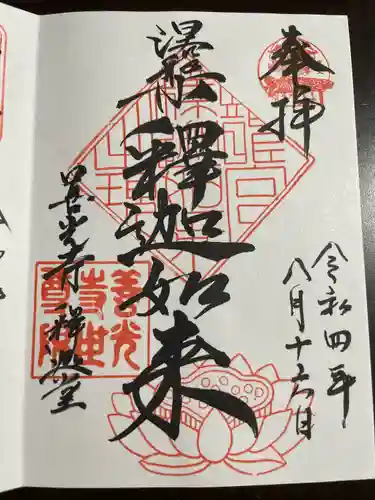 奉拝
令和四年
八月十六日
涅槃
釋迦如来
善光寺 釋迦堂
善光
寺世
尊院